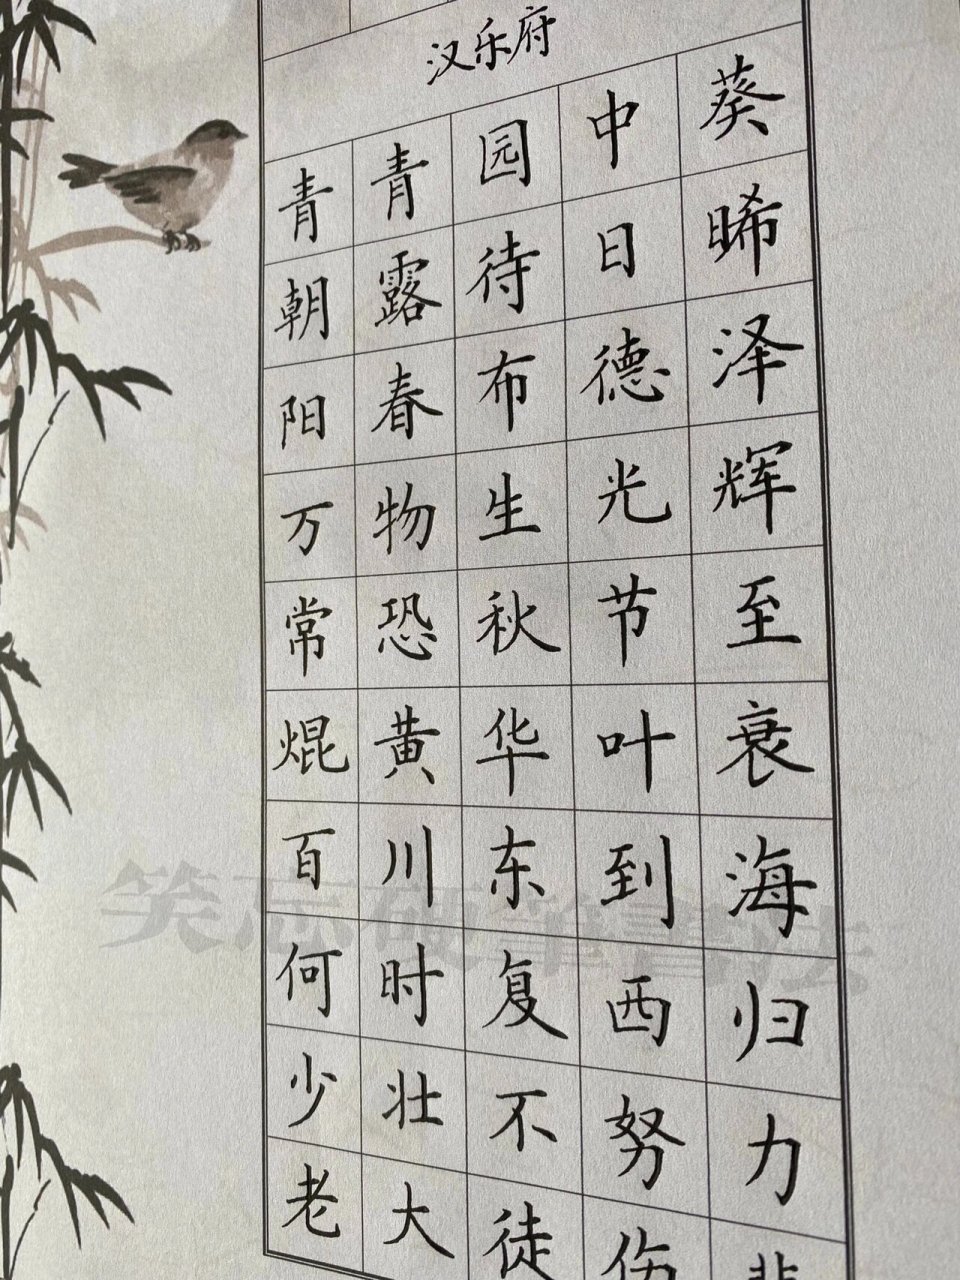 汉乐府
青青园中葵
朝露待日晞
阳春布德泽
万物生光辉
常恐秋节至
焜黄华叶衰
百川东到海
何时复西归
少壮不努力
老大徒伤悲
笑志硬筆書法